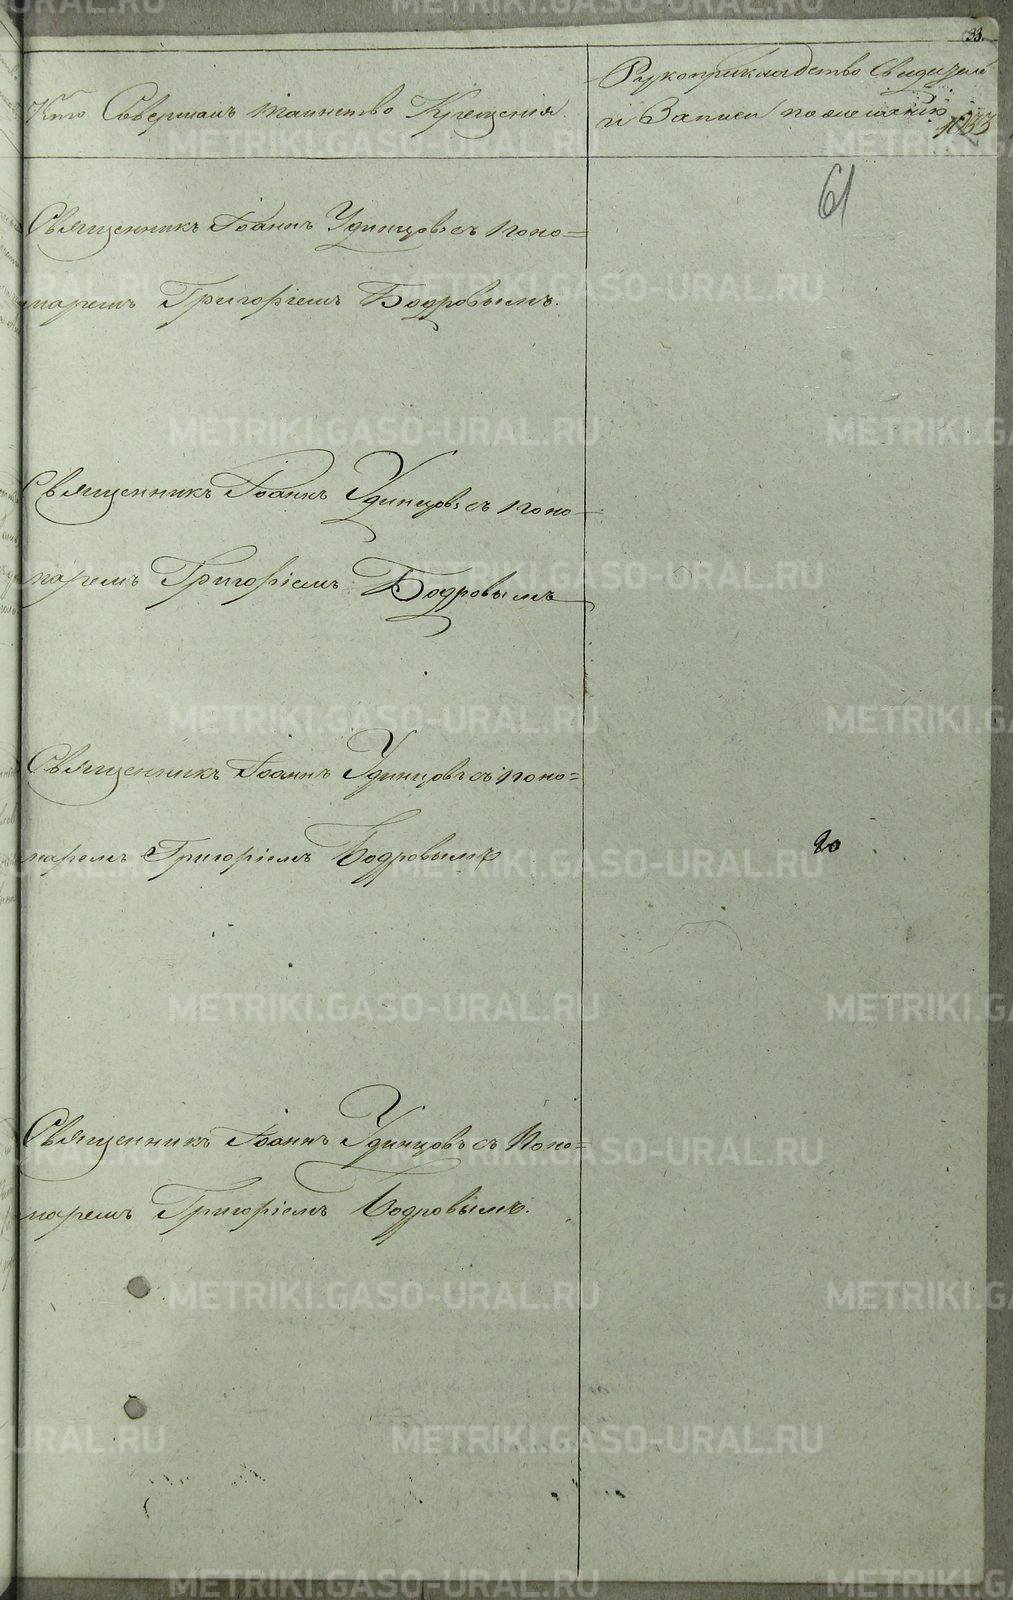 33.
Кто Совершалъ таинство Крещенія.
Рукоприкладство Свидетелей
и Записи по желанію
61
Священникъ Іоаннъ Удинцовъ съ поно=
маремъ Григоріемъ Бодровымъ.
Священникъ Іоаннъ Удинцовъ съ поно-
маремъ Григоріемъ Бодровымъ
Священникъ Іоаннъ Удинцовъ съ поно=
маремъ Григоріемъ Бодровымъ
20
Священникъ Іоаннъ Удинцовъ съ Поно=
маремъ Григоріемъ Бодровымъ.
METRIKI.GASO-URAL.RU